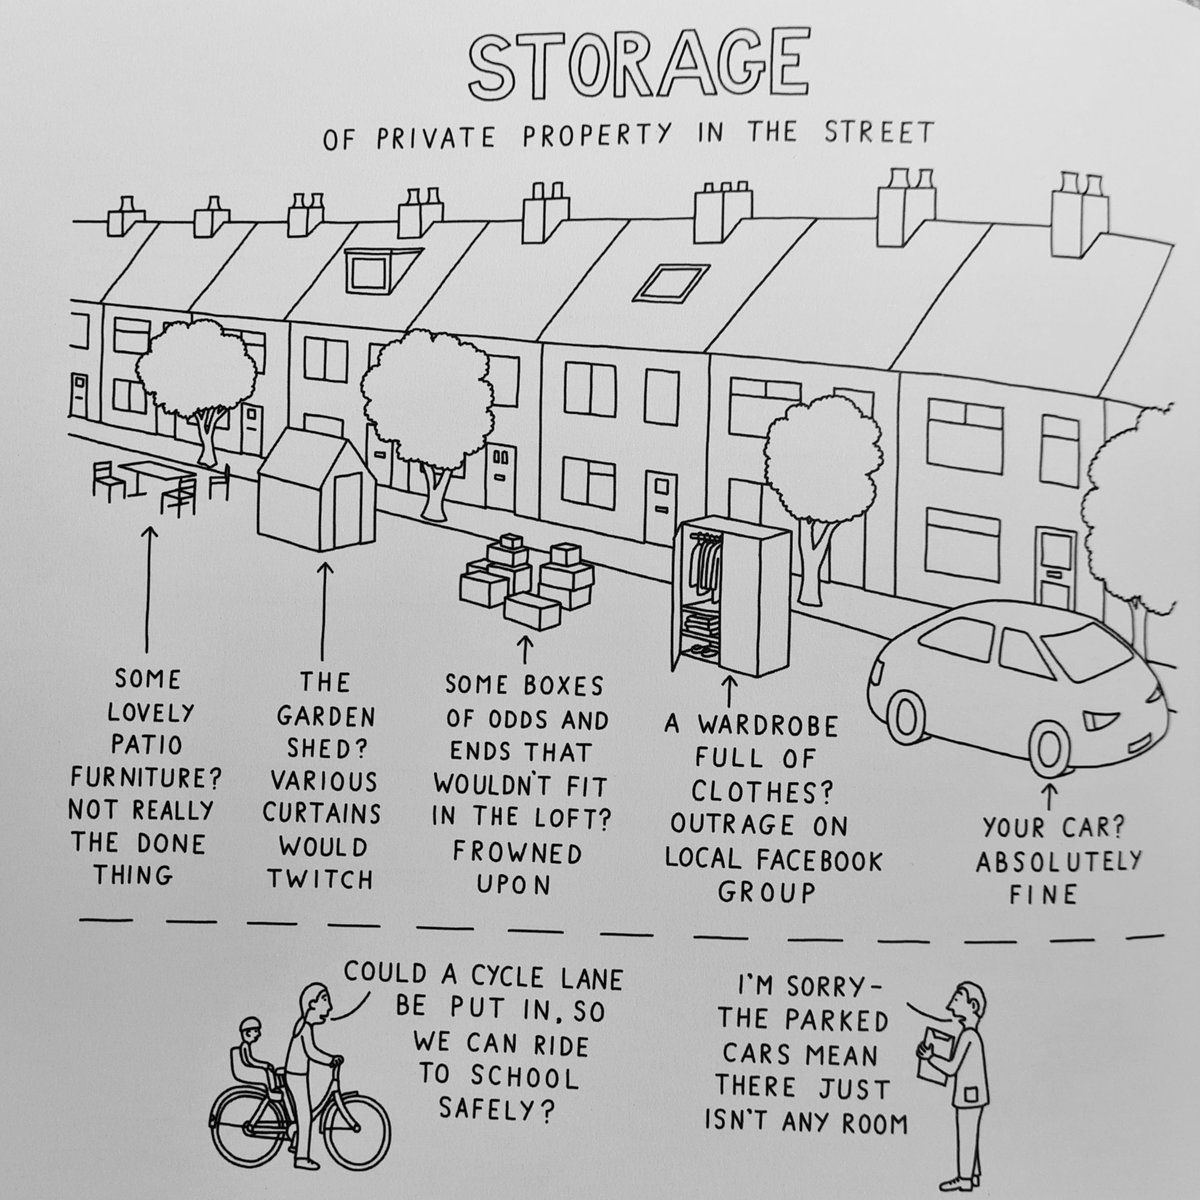 STORAGE
OF PRIVATE PROPERTY IN THE STREET
SOME
LOVELY
PATIO
FURNITURE?
NOT REALLY
THE DONE
THING
THE
GARDEN
SHED?
VARIOUS
CURTAINS
WOULD
TWITCH
SOME BOXES
OF ODDS AND
ENDS THAT
WOULDN'T FIT
IN THE LOFT?
FROWNED
UPON
A WARDROBE
FULL OF
CLOTHES?
OUTRAGE ON
LOCAL FACEBOOK
GROUP
YOUR CAR?
ABSOLUTELY
FINE
COULD A CYCLE LANE
BE PUT IN, SO
WE CAN RIDE
TO SCHOOL
SAFELY?
I'M SORRY-
THE PARKED
CARS MEAN
THERE JUST
ISN'T ANY ROOM